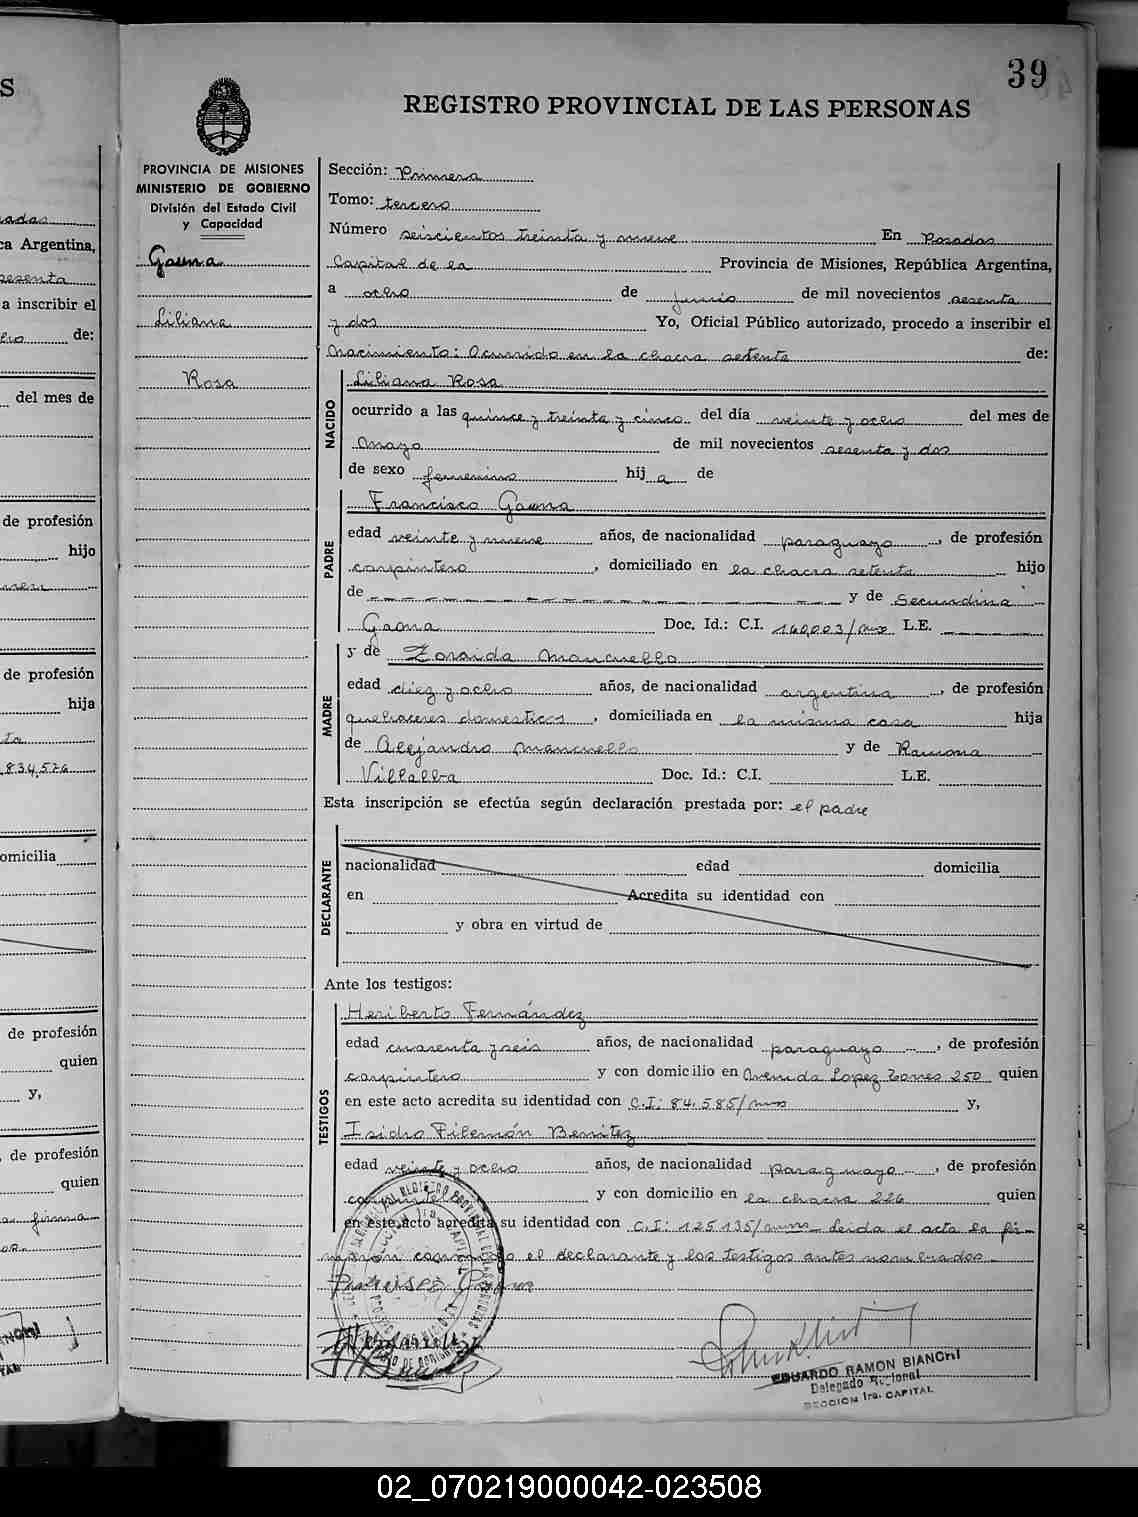 39
REGISTRO PROVINCIAL DE LAS PERSONAS
PROVINCIA DE MISIONES
MINISTERIO DE GOBIERNO
División del Estado Civil
y Capacidad
Gaona
Liliana
Rosa
Sección: Primera
Tomo: tercero
Número seiscientos treinta y nueve En Posadas
Capital de la Provincia de Misiones, República Argentina,
a ocho de junio de mil novecientos sesenta
y dos Yo, Oficial Público autorizado, procedo a inscribir el
nacimiento: Ocurrido en la chacra setenta de:
NACIDO
Liliana Rosa
ocurrido a las quince y treinta y cinco del día veinte y ocho del mes de
mayo de mil novecientos sesenta y dos
de sexo femenino hij a de
PADRE
Francisco Gaona
edad veinte y nueve años, de nacionalidad paraguayo, de profesión
carpintero, domiciliado en la chacra setenta hijo
de y de Secundina
Gaona Doc. Id.: C.I. 160,003/mns L.E.
MADRE
y de Zoraida Mancuello
edad diez y ocho años, de nacionalidad argentina, de profesión
quehaceres domesticos, domiciliada en la misma casa hija
de Alejandro Mancuello y de Ramona
Villalba Doc. Id.: C.I. L.E.
Esta inscripción se efectúa según declaración prestada por: el padre
DECLARANTE
nacionalidad edad domicilia
en Acredita su identidad con
y obra en virtud de
Ante los testigos:
TESTIGOS
Heriberto Fernández
edad cuarenta y seis años, de nacionalidad paraguayo, de profesión
carpintero y con domicilio en Avenida Lopez Torres 250 quien
en este acto acredita su identidad con C.I: 84.585/mns y,
Isidro Filemón Benitez
edad veinte y ocho años, de nacionalidad paraguayo, de profesión
y con domicilio en la chacra 226 quien
en este acto acredita su identidad con C.I: 125135/mns leida el acta la fir-
maron conmigo el declarante y los testigos antes nombrados
EDUARDO RAMON BIANCHI
Delegado Regional
SECCION 1ra. CAPITAL
S
ca Argentina,
a inscribir el
de:
del mes de
de profesión
hijo
de profesión
hija
834,576
omicilia
de profesión
quien
y,
, de profesión
quien
firma
02_070219000042-023508